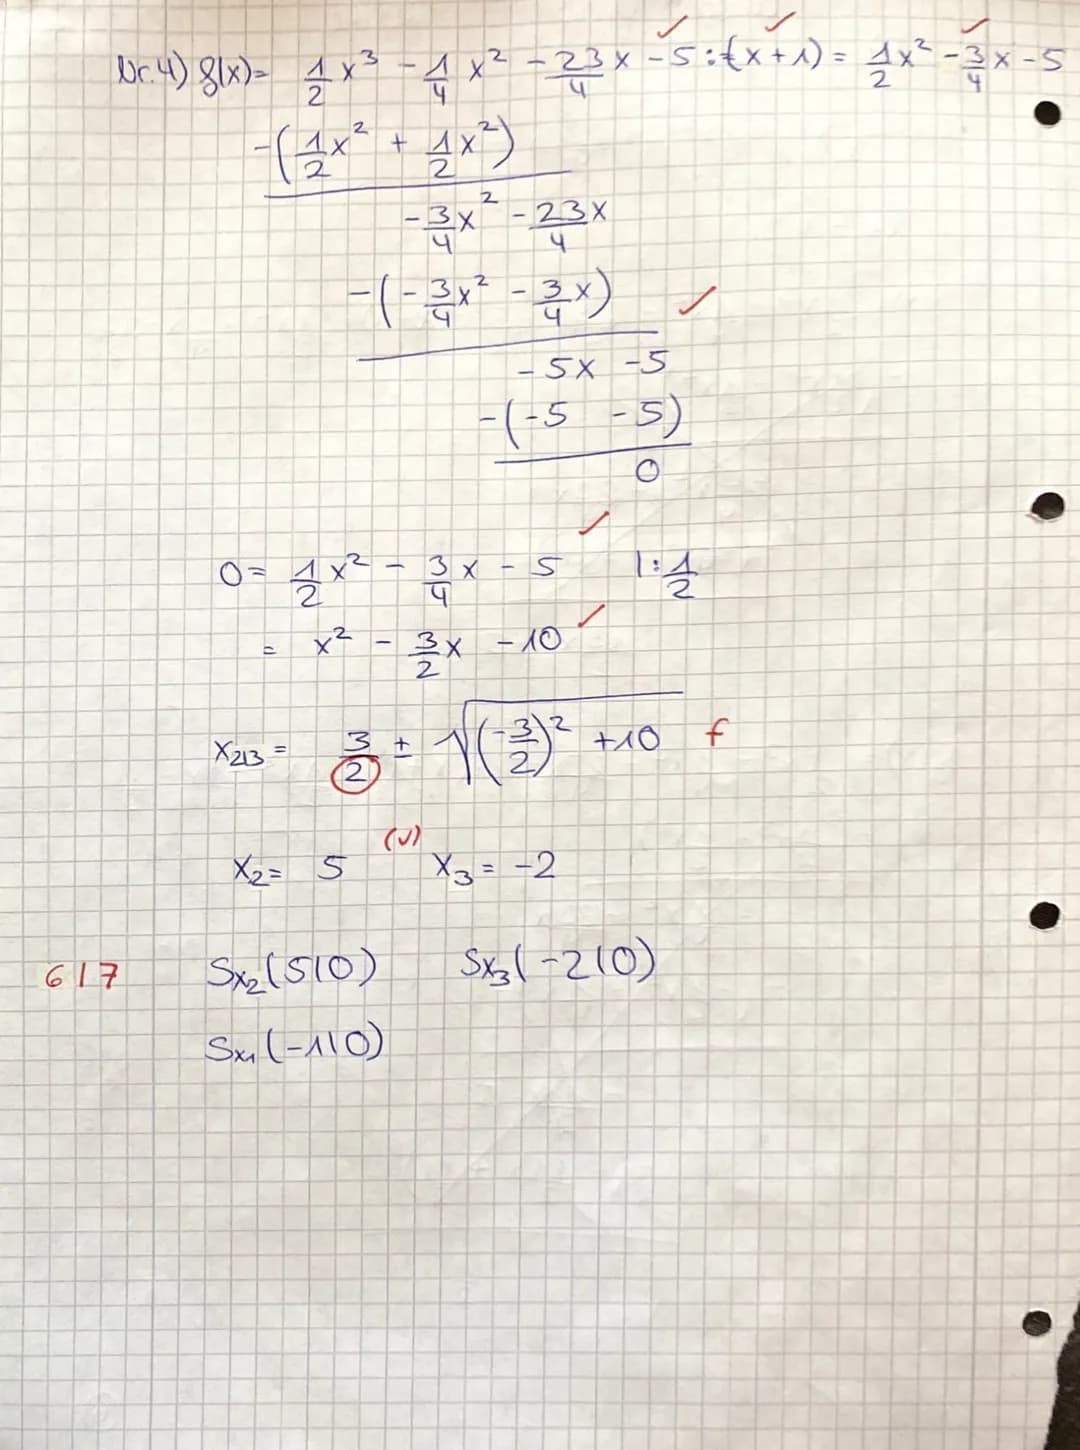 Nr. 4) g(x)= 1/2 x³ - 1/4 x² - 23/4 x - 5 : (x + 1) = 1/2 x² - 3/4 x - 5
-(1/2 x² + 1/2 x²)
-3/4 x² - 23/4 x
-(-3/4 x² - 3/4 x)
-5x -5
-(-5 -5)
0
0 = 1/2 x² - 3/4 x - 5 |: 1/2
= x² - 3/2 x - 10
x2/3 = 3/2 ± √((-3/2)² +10) f
(√)
x₂= 5 x₃= -2
6/7 Sx₂(5|0) Sx₃(-2|0)
Sx₁(-1|0)